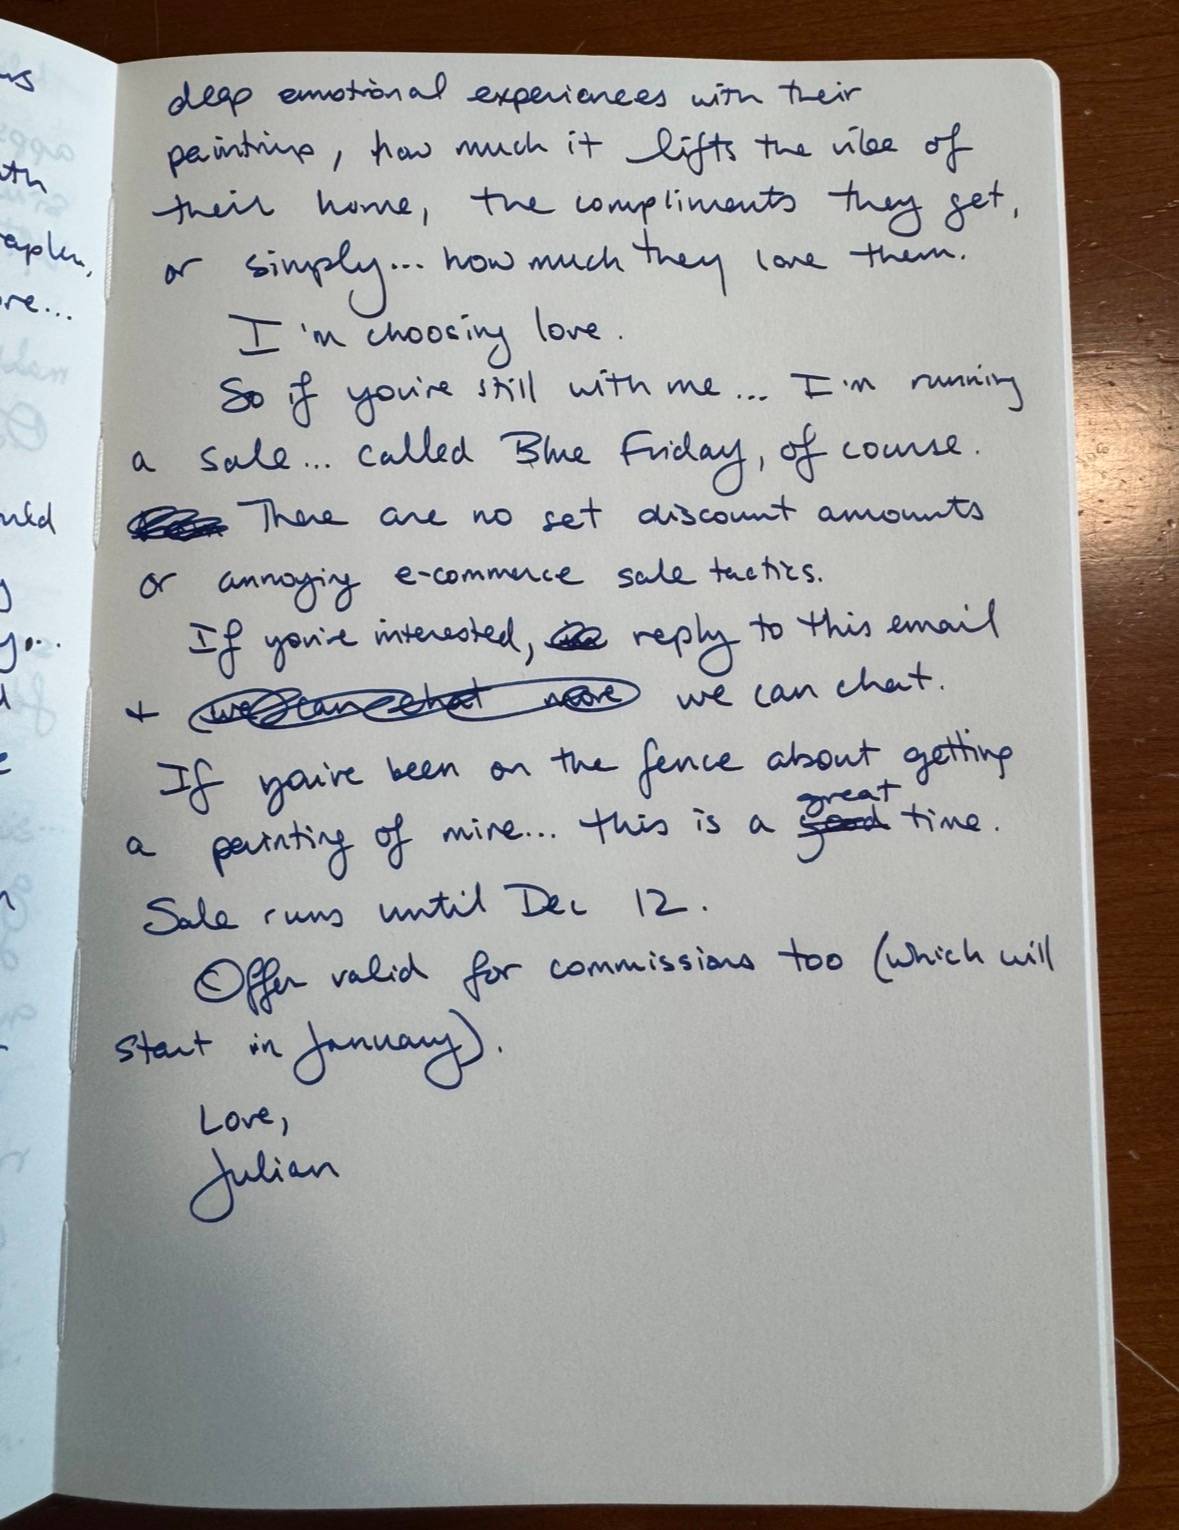 deep emotional experiences with their
paintings, how much it lifts the vibe of
their home, the compliments they get,
or simply... how much they love them.
I'm choosing love.
So if you're still with me... I'm running
a sale... called Blue Friday, of course.
There are no set discount amounts
or annoying e-commerce sale tactics.
If you're interested, reply to this email
+ we can chat more we can chat.
If you've been on the fence about getting
great
a painting of mine... this is a good time.
Sale runs until Dec 12.
Offer valid for commissions too (which will
start in January).
Love,
Julian